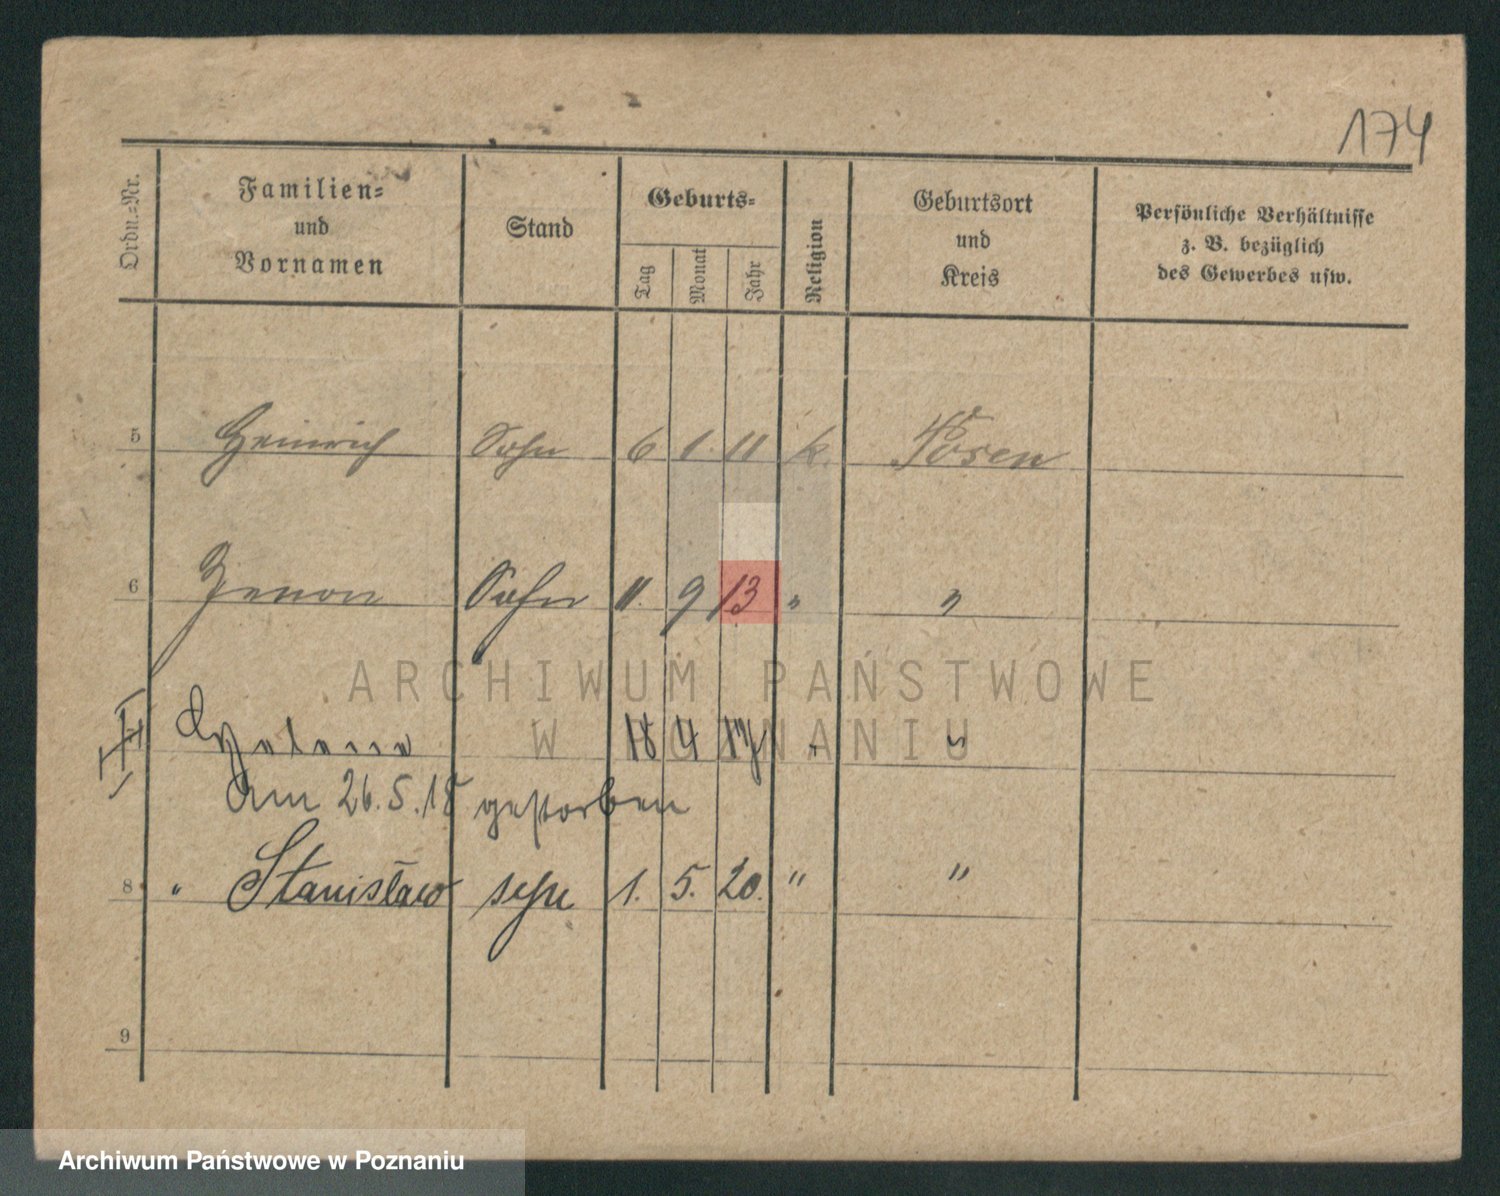 174
Ordn.=Nr.
Familien=
und
Vornamen
Stand
Geburts=
Tag
Monat
Jahr
Religion
Geburtsort
und
Kreis
Persönliche Verhältnisse
z. B. bezüglich
des Gewerbes usw.
5 Heinrich Sohn 6 1. 11 k. Posen
6 Zenon Sohn 11. 9 13 " "
18 4 17 " "
Am 26.5.18 gestorben
8 " Stanisław 1. 5. 20. " "
9
ARCHIWUM PAŃSTWOWE
W POZNANIU
Archiwum Państwowe w Poznaniu